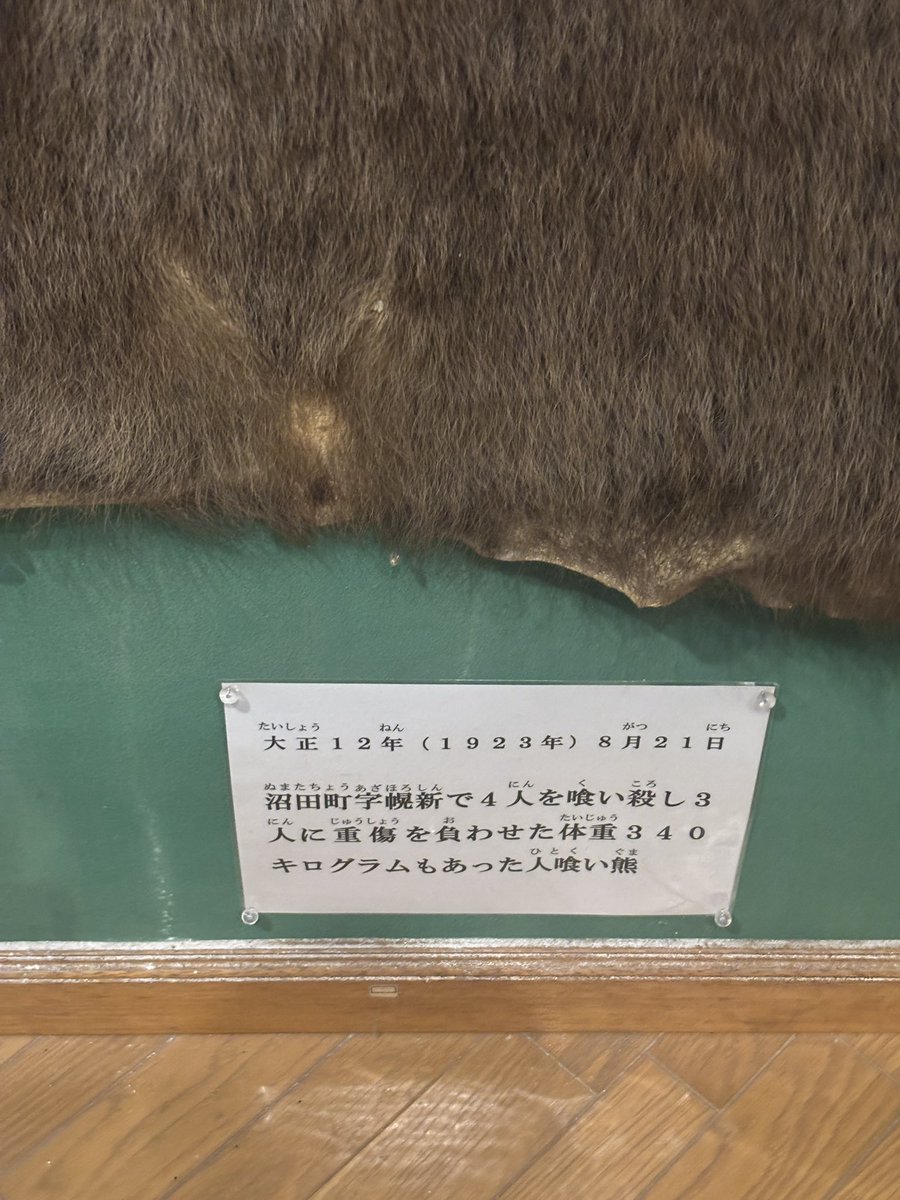 たいしょう ねん がつ にち
大正12年(1923年)8月21日
ぬまたちょうあざほろしん にん く ころ
沼田町字幌新で4人を喰い殺し3
にん じゅうしょう お たいじゅう
人に重傷を負わせた体重340
ひとく ぐま
キログラムもあった人喰い熊